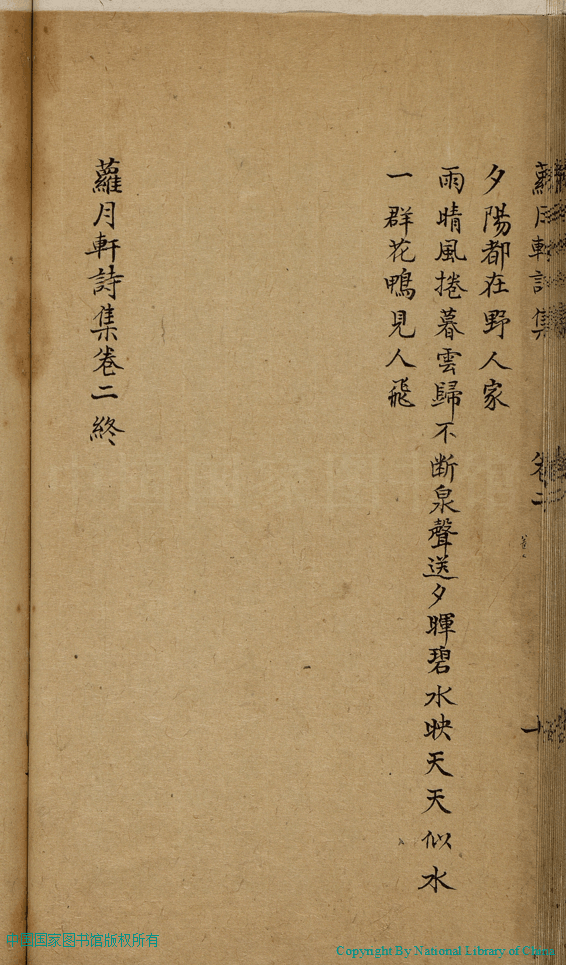 蘿月軒詩集 卷二
夕陽都在野人家
雨晴風捲暮雲歸不斷泉聲送夕暉碧水映天天似水
一群花鴨見人飛
蘿月軒詩集卷二終
中国国家图书馆版权所有
Copyright By National Library of China